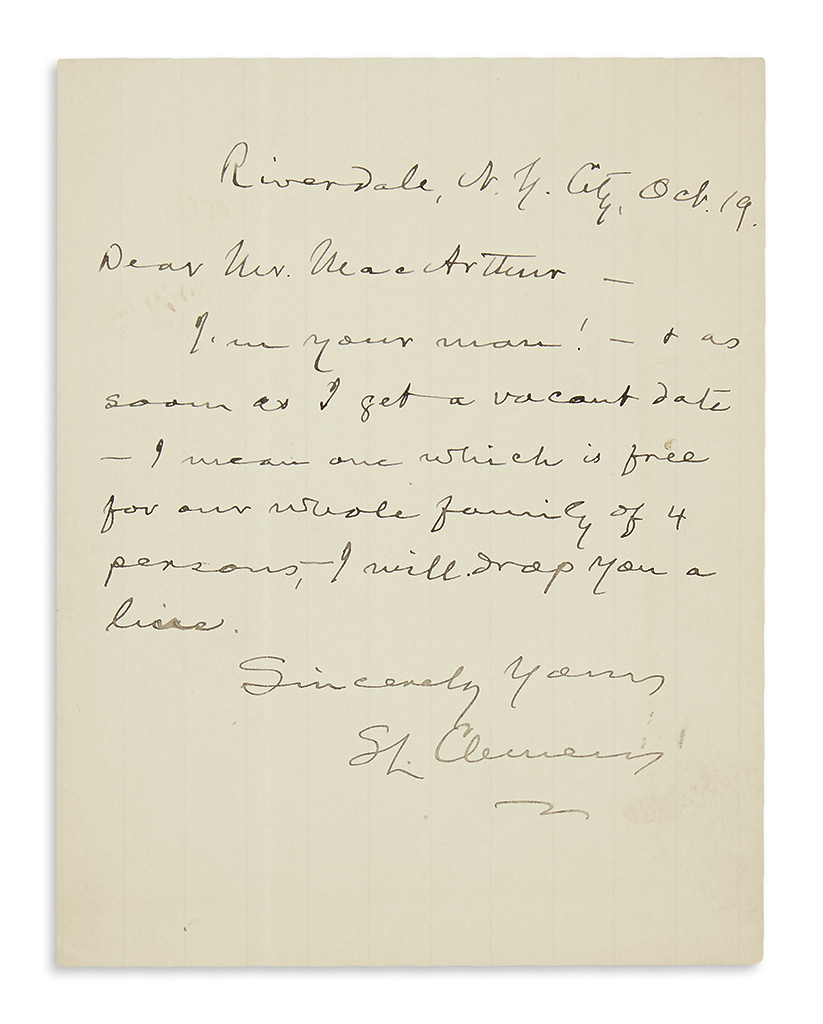 Riverdale, N.Y. City, Oct. 19.
Dear Mr. MacArthur —
I'm your man! — & as
soon as I get a vacant date
— I mean one which is free
for our whole family of 4
persons, — I will drop you a
line.
Sincerely Yours
SL. Clemens